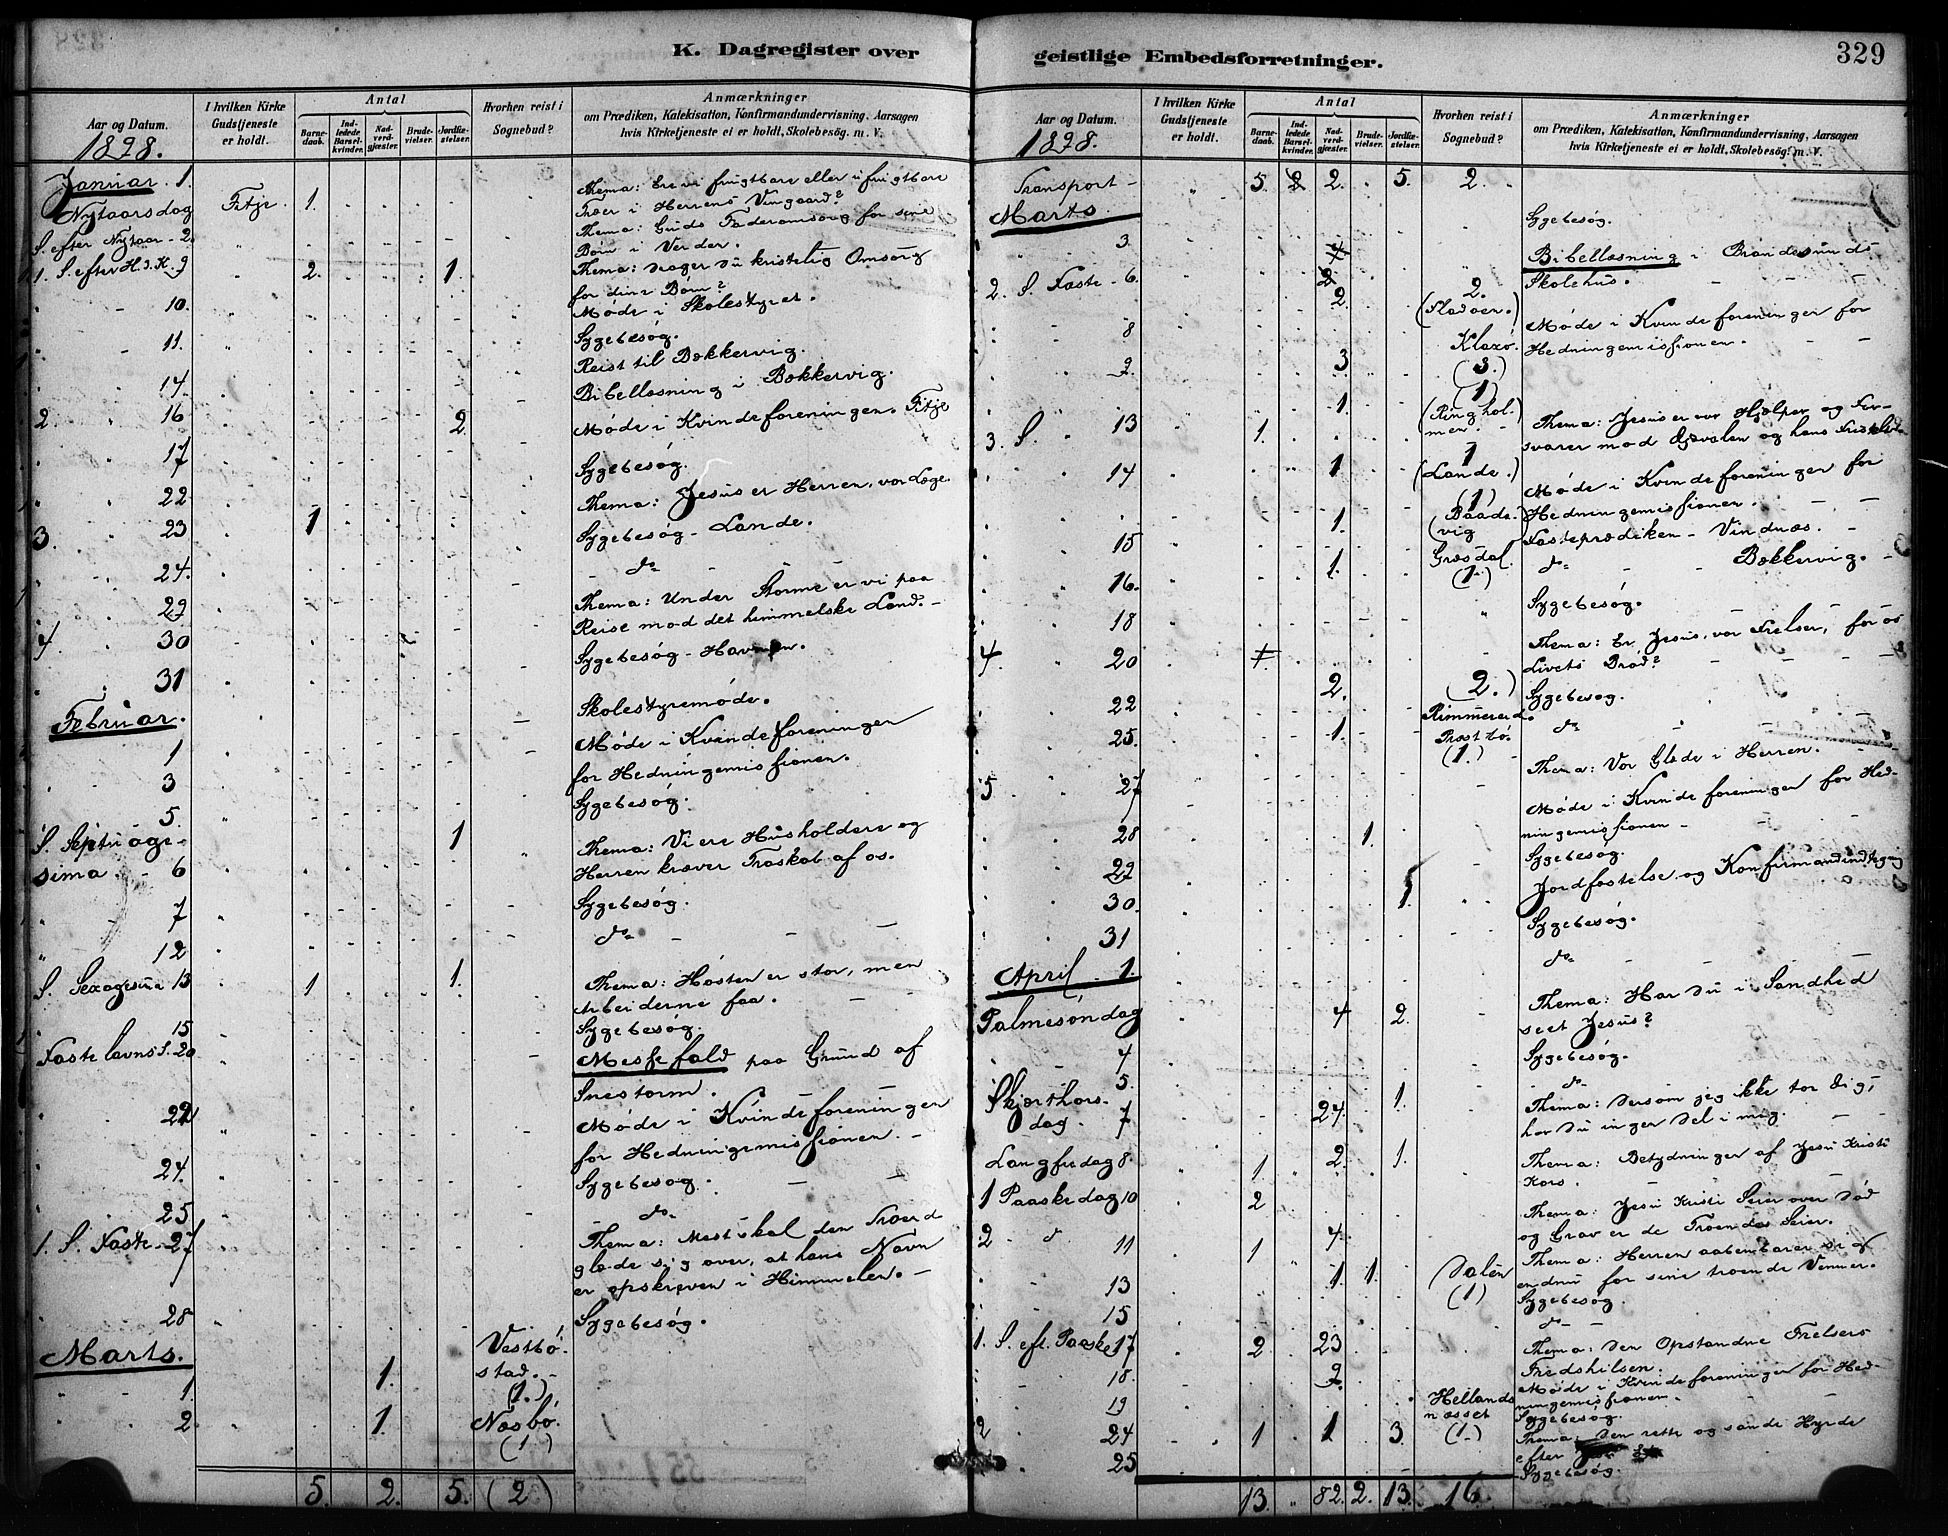 K. Dagregister over
Aar og Datum.
1898.
I hvilken Kirke Gudstjeneste er holdt.
Antal
Barnedaab.
Indledede Barselkvinder.
Nadverdgjæster.
Brudevielser.
Jordfæstelser.
Hvorhen reist i Sognebud?
Anmærkninger
om Prædiken, Katekisation, Konfirmandundervisning, Aarsagen
hvis Kirketjeneste ei er holdt, Skolebesøg. m. V.
Januar 1.
Nytaarsdag Fitje. 1.
Thema: Ere vi frugtbare eller ufrugtbare
Træer i Herrens Vingaard?
S. efter Nytaar - 2.
Thema: Guds Faderomsorg for sine
Børn i Verden.
1. S. efter H. 3. K. 9 2. 1.
Thema: Drager Du kristelig Omsorg
for dine Børn?
10. Møde i Skolestyret.
11. Sygebesøg.
Reist til Bækkervig.
14. Bibellæsning i Bækkervig.
2 16 2. Møde i Kvindeforeningen. Fitje
17 Sygebesøg.
22 Thema: Jesus er Herren, vor Læge.
3. 23 1 Sygebesøg - Lande.
24. do
29 Thema: Under Storme er vi paa
Reise mod det himmelske Land. -
4. 30 Sygebesøg -
31 Skolestyremøde.
Februar.
1 Møde i Kvindeforeningen
for Hedningemissionen.
3
5. Sygebesøg.
S. Septuage-
sima - 6 1
Thema: Vi ere Husholdere og
Herren kræver Troskab af os.
7 Sygebesøg.
12 do
S. Sexagesima 13 1 1.
Thema: Høsten er stor, men
Arbeiderne faa.
15 Sygebesøg.
Fastelavns S. 20 Messefald paa Grund af
Snestorm.
22 Møde i Kvindeforeningen
for Hedningemissionen. -
24. Sygebesøg.
25 do
1. S. Faste - 27
Thema: Mest skal den Troende
glæde sig over, at hans Navn
er opskreven i Himmelen. -
28 Sygebesøg.
Marts.
1. 1. Vestbø-
stad. -
(1.)
2 1. Næsbø.
(1)
5. 2. 5. (2)
geistlige Embedsforretninger.
329
Aar og Datum.
1898.
I hvilken Kirke Gudstjeneste er holdt.
Antal
Barnedaab.
Indledede Barselkvinder.
Nadverdgjæster.
Brudevielser.
Jordfæstelser.
Hvorhen reist i Sognebud?
Anmærkninger
om Prædiken, Katekisation, Konfirmandundervisning, Aarsagen
hvis Kirketjeneste ei er holdt, Skolebesøg. m. V.
Transport - 5. 2 2. 5. 2.
Marts.
3. Sygebesøg.
2. S. Faste - 6. 2. 2.
(Fladøen.)
Bibellæsning i Brandesunds
Skolehus.
8 Klaxø.
(3.)
Møde i Kvindeforeningen for
Hedningemissionen.
9. 3
3. S. 13 1. 1.
(1)
(Ringhol-
men.
Thema: Jesus er vor Hjælper og For-
svarer mod Djævelen og hans
14 1 1
(Lande.)
Møde i Kvindeforeningen for
Hedningemissionen.
15 1. (1)
(Baads-
vig
Fasteprædiken - Vindnæs.
16. 1. Græsdal.
(1.)
do Bækkervig. -
18 Sygebesøg.
4. 20
Thema: Er Jesus, vor Frelser, for os
Livets Brød?
22 2. (2.) Sygebesøg.
25. 1. Rimmereid.
Præstbø.
(1.)
do
5 27 Thema: Vor Glæde i Herren.
28 1. Møde i Kvindeforeningen for Hed-
ningemissionen -
29 Sygebesøg.
30. 1. Jordfæstelse og Konfirmandindtegning
31 Sygebesøg.
April. 1 do
Palmesøndag 4 2.
Thema: Har Du i Sandhed
seet Jesus?
4 Sygebesøg.
5. do
Skjærthors-
dag. 7 24. 1.
Thema: Dersom jeg ikke tor dig,
har Du ingen Del i mig.
Langfredag 8. 1 2. 1.
Thema: Betydningen af Jesu Kristi
Kors.
1 Paaskedag 10 2
Thema: Jesu Kristi Seier over Død
og Grav er de Troendes Seier.
2 - do 11 1 4.
Thema: Herren aabenbarer sig
endnu for sine troende Venner.
13 1. 1. Dalen
(1)
Sygebesøg.
15 do
1. S. eft. Paaske 17 2 23
Thema: Den Opstandne Frelsers
Fredshilsen.
18. 2. Møde i Kvindeforeningen for Hed-
ningemissionen.
19 Sygebesøg.
2 24 1 1 3. Hellands
næsset
(1.)
Thema: Den rette og sande Hyrde
efter
25 Sygebesøg.
13. 82. 2. 13. 16.